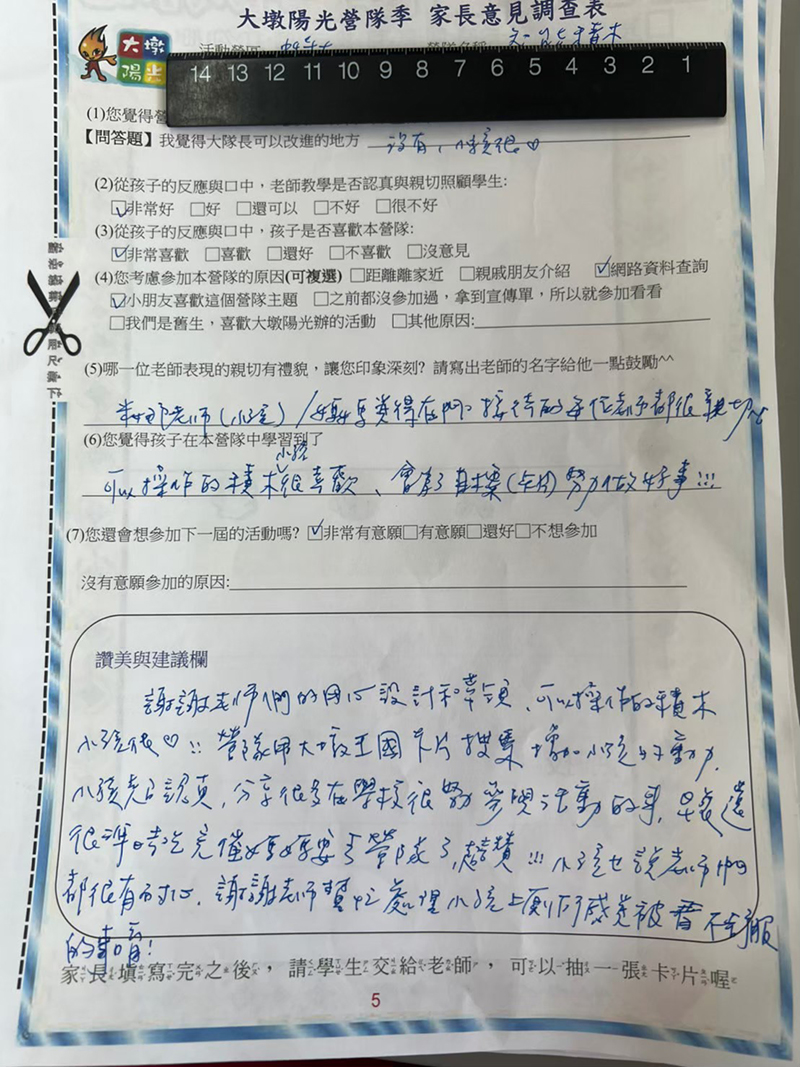 大墩陽光營隊季 家長意見調查表
大墩
陽光
14 13 12 11 10 9 8 7 6 5 4 3 2 1
(1)您覺得營
【問答題】我覺得大隊長可以改進的地方 沒有，小孩很♡
(2)從孩子的反應與口中，老師教學是否認真與親切照顧學生:
☑非常好 □好 □還可以 □不好 □很不好
(3)從孩子的反應與口中，孩子是否喜歡本營隊:
☑非常喜歡 □喜歡 □還好 □不喜歡 □沒意見
(4)您考慮參加本營隊的原因(可複選) □距離離家近 □親戚朋友介紹 ☑網路資料查詢
☑小朋友喜歡這個營隊主題 □之前都沒參加過，拿到宣傳單，所以就參加看看
□我們是舊生，喜歡大墩陽光辦的活動 □其他原因:
(5)哪一位老師表現的親切有禮貌，讓您印象深刻? 請寫出老師的名字給他一點鼓勵^^
老師(小孩) / 媽媽覺得在門口接待的每位老師都很親切
(6)您覺得孩子在本營隊中學習到了
可以操作的積木小孩很喜歡、會為了目標(卡片)努力做好事!!!
(7)您還會想參加下一屆的活動嗎? ☑非常有意願□有意願□還好□不想參加
沒有意願參加的原因:
讚美與建議欄
謝謝老師們的用心設計和帶領、可以操作的積木
小孩很♡!! 營隊用大墩王國卡片搜集增加小孩的動力,
小孩超認真, 分享很多在學校很努力參與活動的事, 早餐還
很準時吃完催媽媽要去營隊了, 超讚!!! 小孩也說老師們
都很有耐心, 謝謝老師幫忙處理小孩上廁所感覺被 不舒服
的事情!
家長填寫完之後，請學生交給老師，可以抽一張卡片喔
5